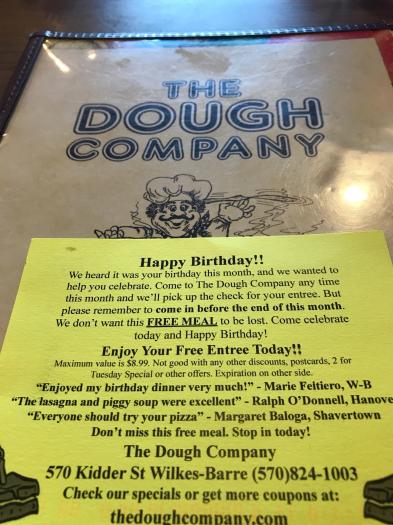 THE
DOUGH
COMPANY
Happy Birthday!!
We heard it was your birthday this month, and we wanted to
help you celebrate. Come to The Dough Company any time
this month and we'll pick up the check for your entree. But
please remember to come in before the end of this month.
We don't want this FREE MEAL to be lost. Come celebrate
today and Happy Birthday!
Enjoy Your Free Entree Today!!
Maximum value is $8.99. Not good with any other discounts, postcards, 2 for
Tuesday Special or other offers. Expiration on other side.
"Enjoyed my birthday dinner very much!" - Marie Feltiero, W-B
"The lasagna and piggy soup were excellent" - Ralph O'Donnell, Hanove
"Everyone should try your pizza" - Margaret Baloga, Shavertown
Don't miss this free meal. Stop in today!
The Dough Company
570 Kidder St Wilkes-Barre (570)824-1003
Check our specials or get more coupons at:
thedoughcompany.com